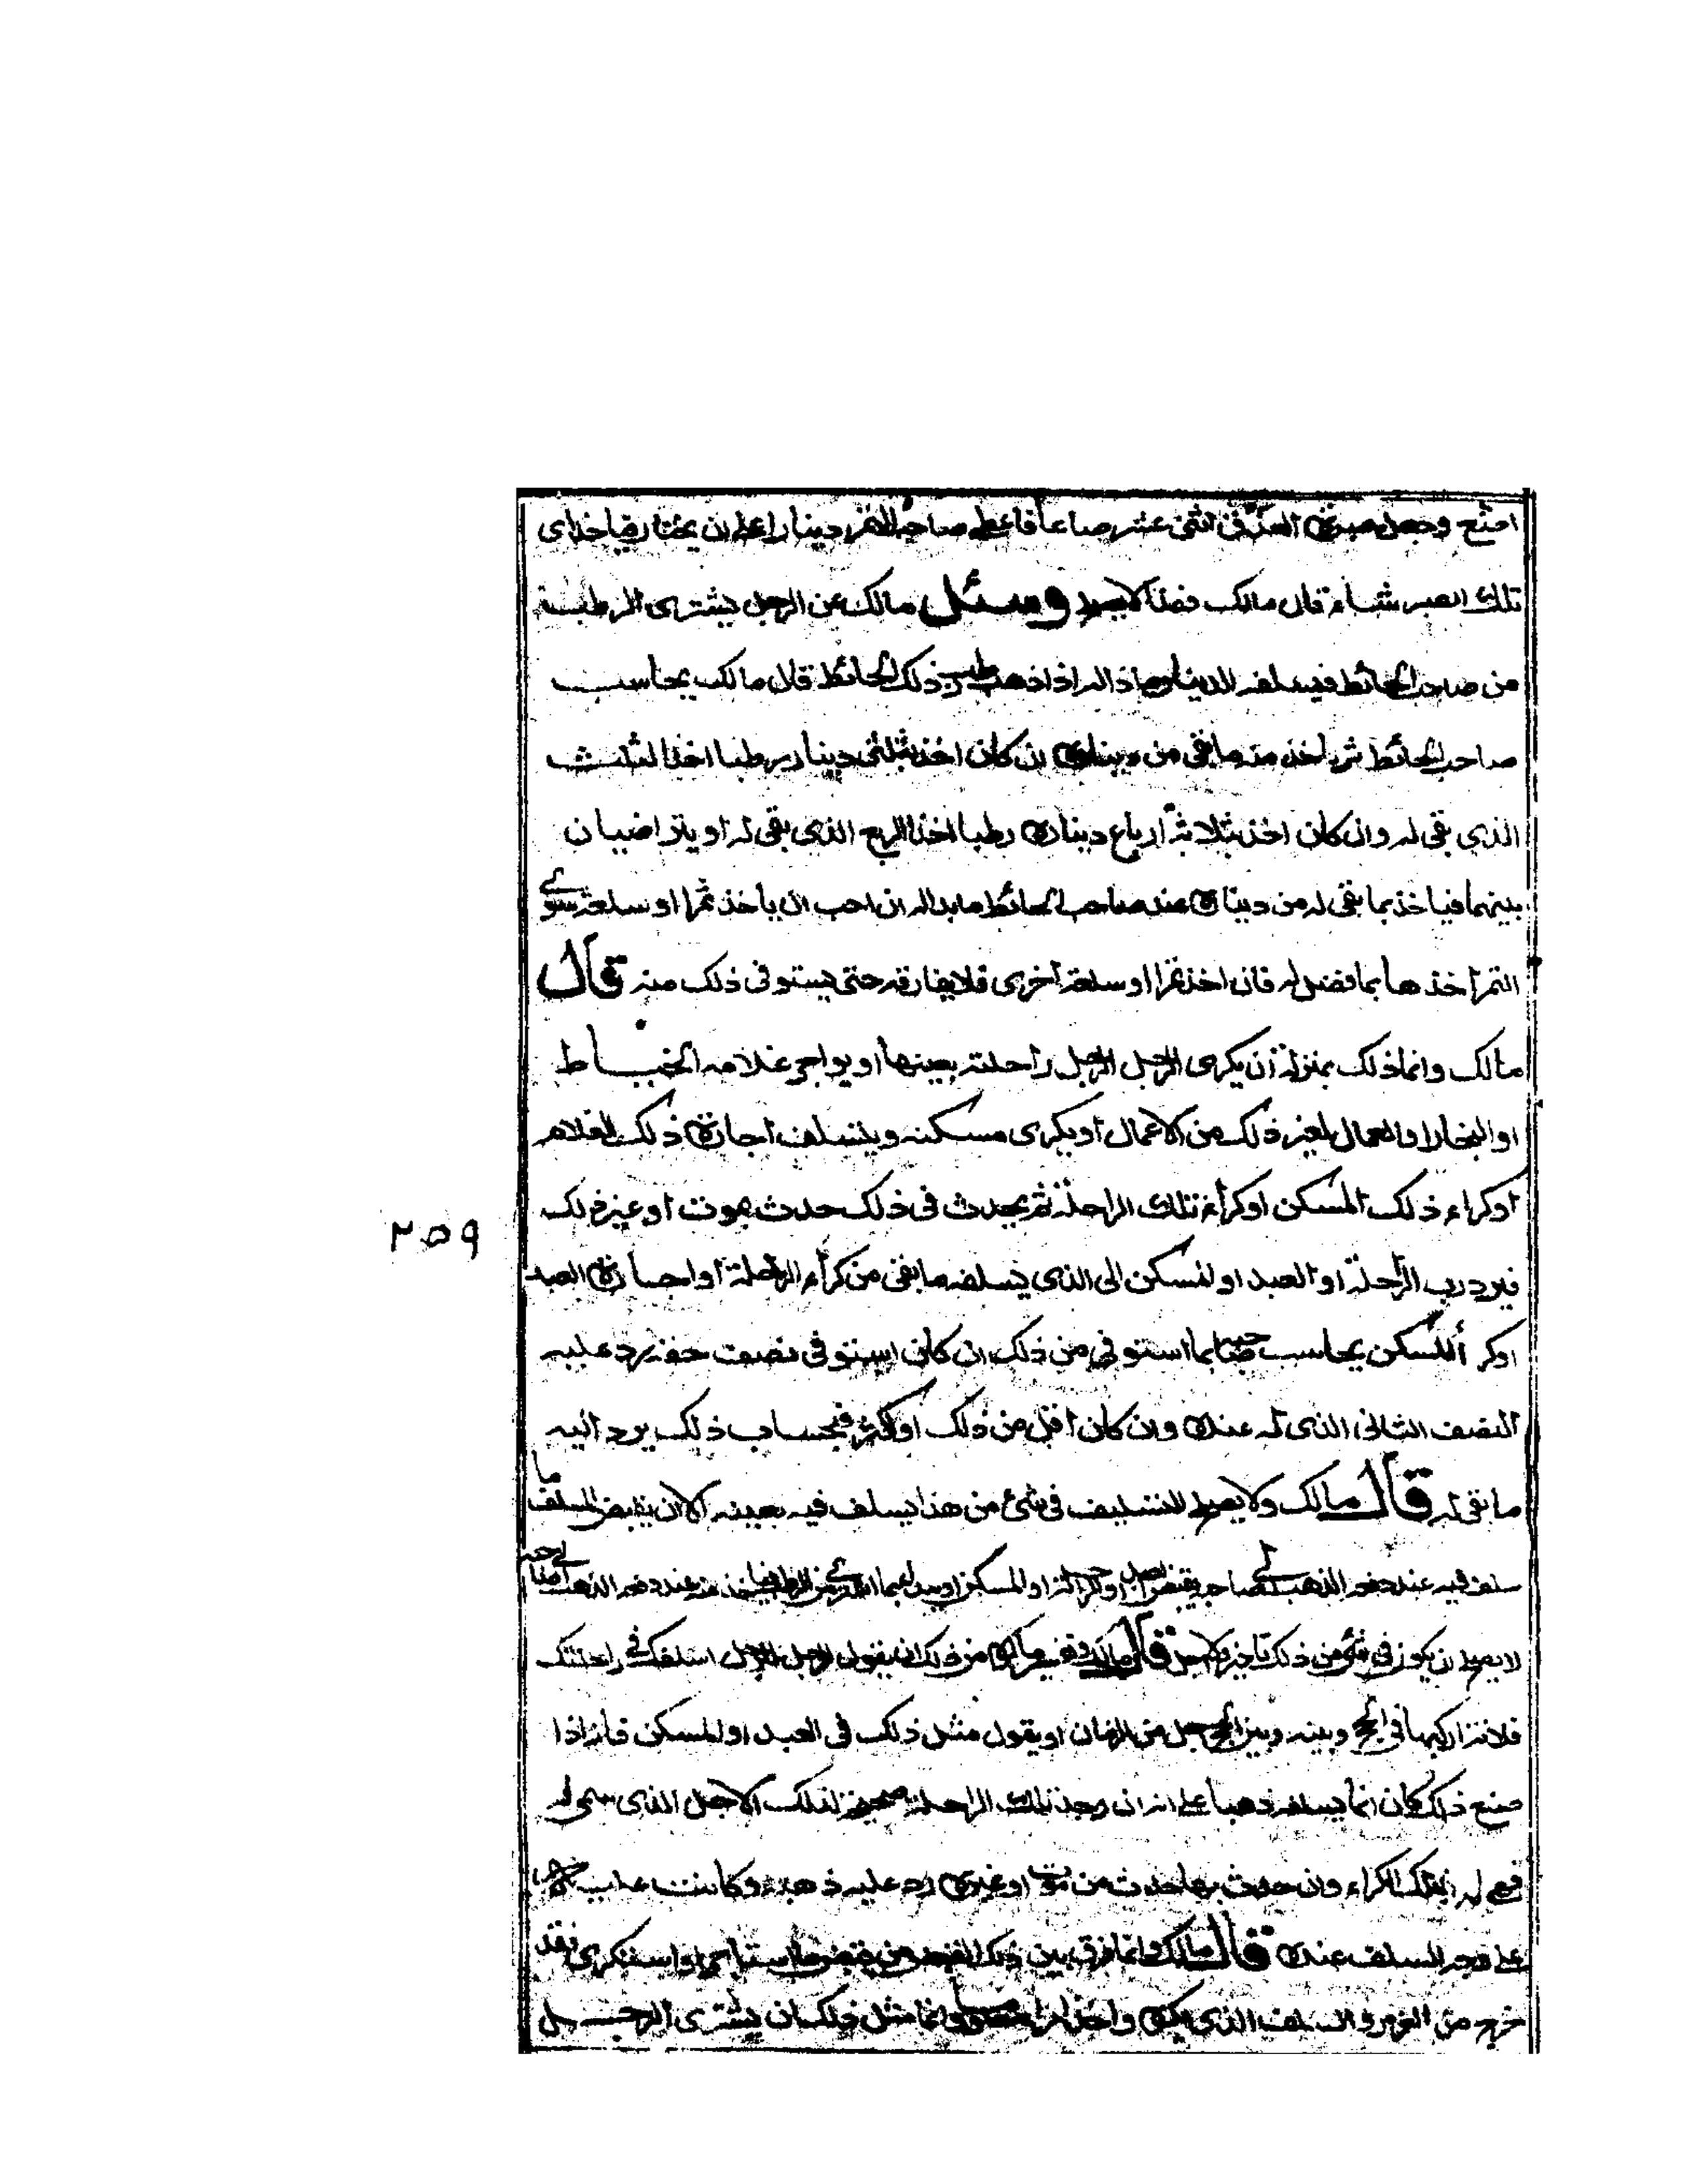 اصئع وجعل صبرة العذق اثنى عشر صاعا فاعطى صاحب التمر دينارا على ان يختار فياخذ اى
تلك الصبر شاء قال مالك فهذا لا يصلح وسئل مالك عن الرجل يشترى الرطب
من صاحب الحائط فيسلفه الدينار ماذا له اذا ذهب رطب ذلك الحائط قال مالك يحاسب
صاحب الحائط ثم ياخذ منه ما بقى من ديناره ان كان اخذ بثلثى دينار رطبا اخذ الثلث
الذى بقى له وان كان اخذ بثلاثة ارباع ديناره رطبا اخذ الربع الذى بقى له او يتراضيان
بينهما فياخذ بما بقى له من ديناره عند صاحب الحائط ما بدا له ان احب ان ياخذ تمرا او سلعة سوى
التمر اخذها بما فضل له فان اخذ تمرا او سلعة اخرى فلا يفارقه حتى يستوفى ذلك منه قال
مالك وانما ذلك بمنزلة ان يكرى الرجل الرجل راحلته بعينها او يواجر غلامه الخياط
او النجار او العمال لغير ذلك من الاعمال او يكرى مسكنه ويتسلف اجارة ذلك الغلام
او كراء ذلك المسكن او كراء تلك الراحلة ثم يحدث فى ذلك حدث بموت او غير ذلك
فيرد رب الراحلة او العبد او المسكن الى الذى يسلفه ما بقى من كراء الراحلة او اجارة العبد
او كراء المسكن يحاسب صاحبه بما استوفى من ذلك ان كان استوفى نصف حقه رد عليه
النصف الثانى الذى له عنده وان كان اقل من ذلك او اكثر فبحساب ذلك يرد اليه
ما بقى له قال مالك ولا يصلح التسليف فى شئ من هذا يسلف فيه بعينه الا ان يقبض المسلف ما
سلف فيه عند دفعه الذهب الى صاحبه يقبض العبد او الراحلة او المسكن او يبدا فيما اشترى من الرطب فياخذ منه عند دفعه الذهب الى صاحبه
لا يصلح ان يكون فى شئ من ذلك تاخير ولا اجل قال مالك وتفسير ما كره من ذلك ان يقول الرجل للرجل اسلفك فى راحلتك
فلانة اركبها فى الحج وبينه وبين الحج اجل من الزمان او يقول مثل ذلك فى العبد او المسكن فانه اذا
صنع ذلك كان انما يسلفه ذهبا على انه ان وجد تلك الراحلة صحيحة لذلك الاجل الذى سمى له
فهى له بذلك الكراء وان حدث بها حدث من موت او غيره رد عليه ذهبه وكانت عليه
على وجه السلف عنده قال مالك وانما فرق بين ذلك القبض من يقبض ما استاجر او استكرى فقد
خرج من الغرر والسلف الذى يكره واخذ امرا معلوما وانما مثل ذلك ان يشترى الرجل
٢٥٩